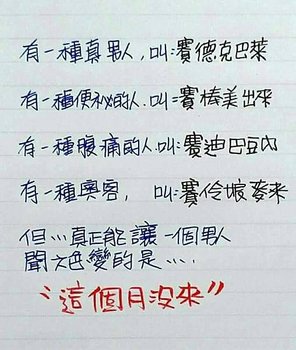 有一種真男人,叫:賽德克巴萊
有一種便祕的人.叫:賽棒美出來
有一種腹痛的人.叫:賽迪巴豆內
有一種奧客, 叫:賽伶娘麥來
但…真正能讓一個男人
聞之色變的是….
"這個月沒來"